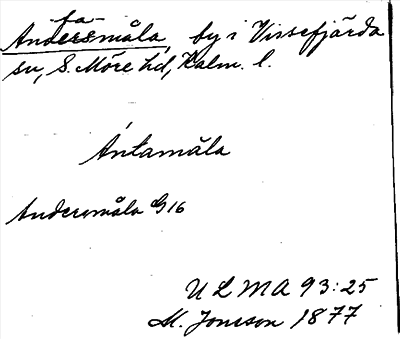 ta
Andersmåla, by i Vissefjärda
sn, S. Möre hd, Kalm. l.
Antamåla
Andersmåla G16
ULMA 93:25
M. Jonsson 1877